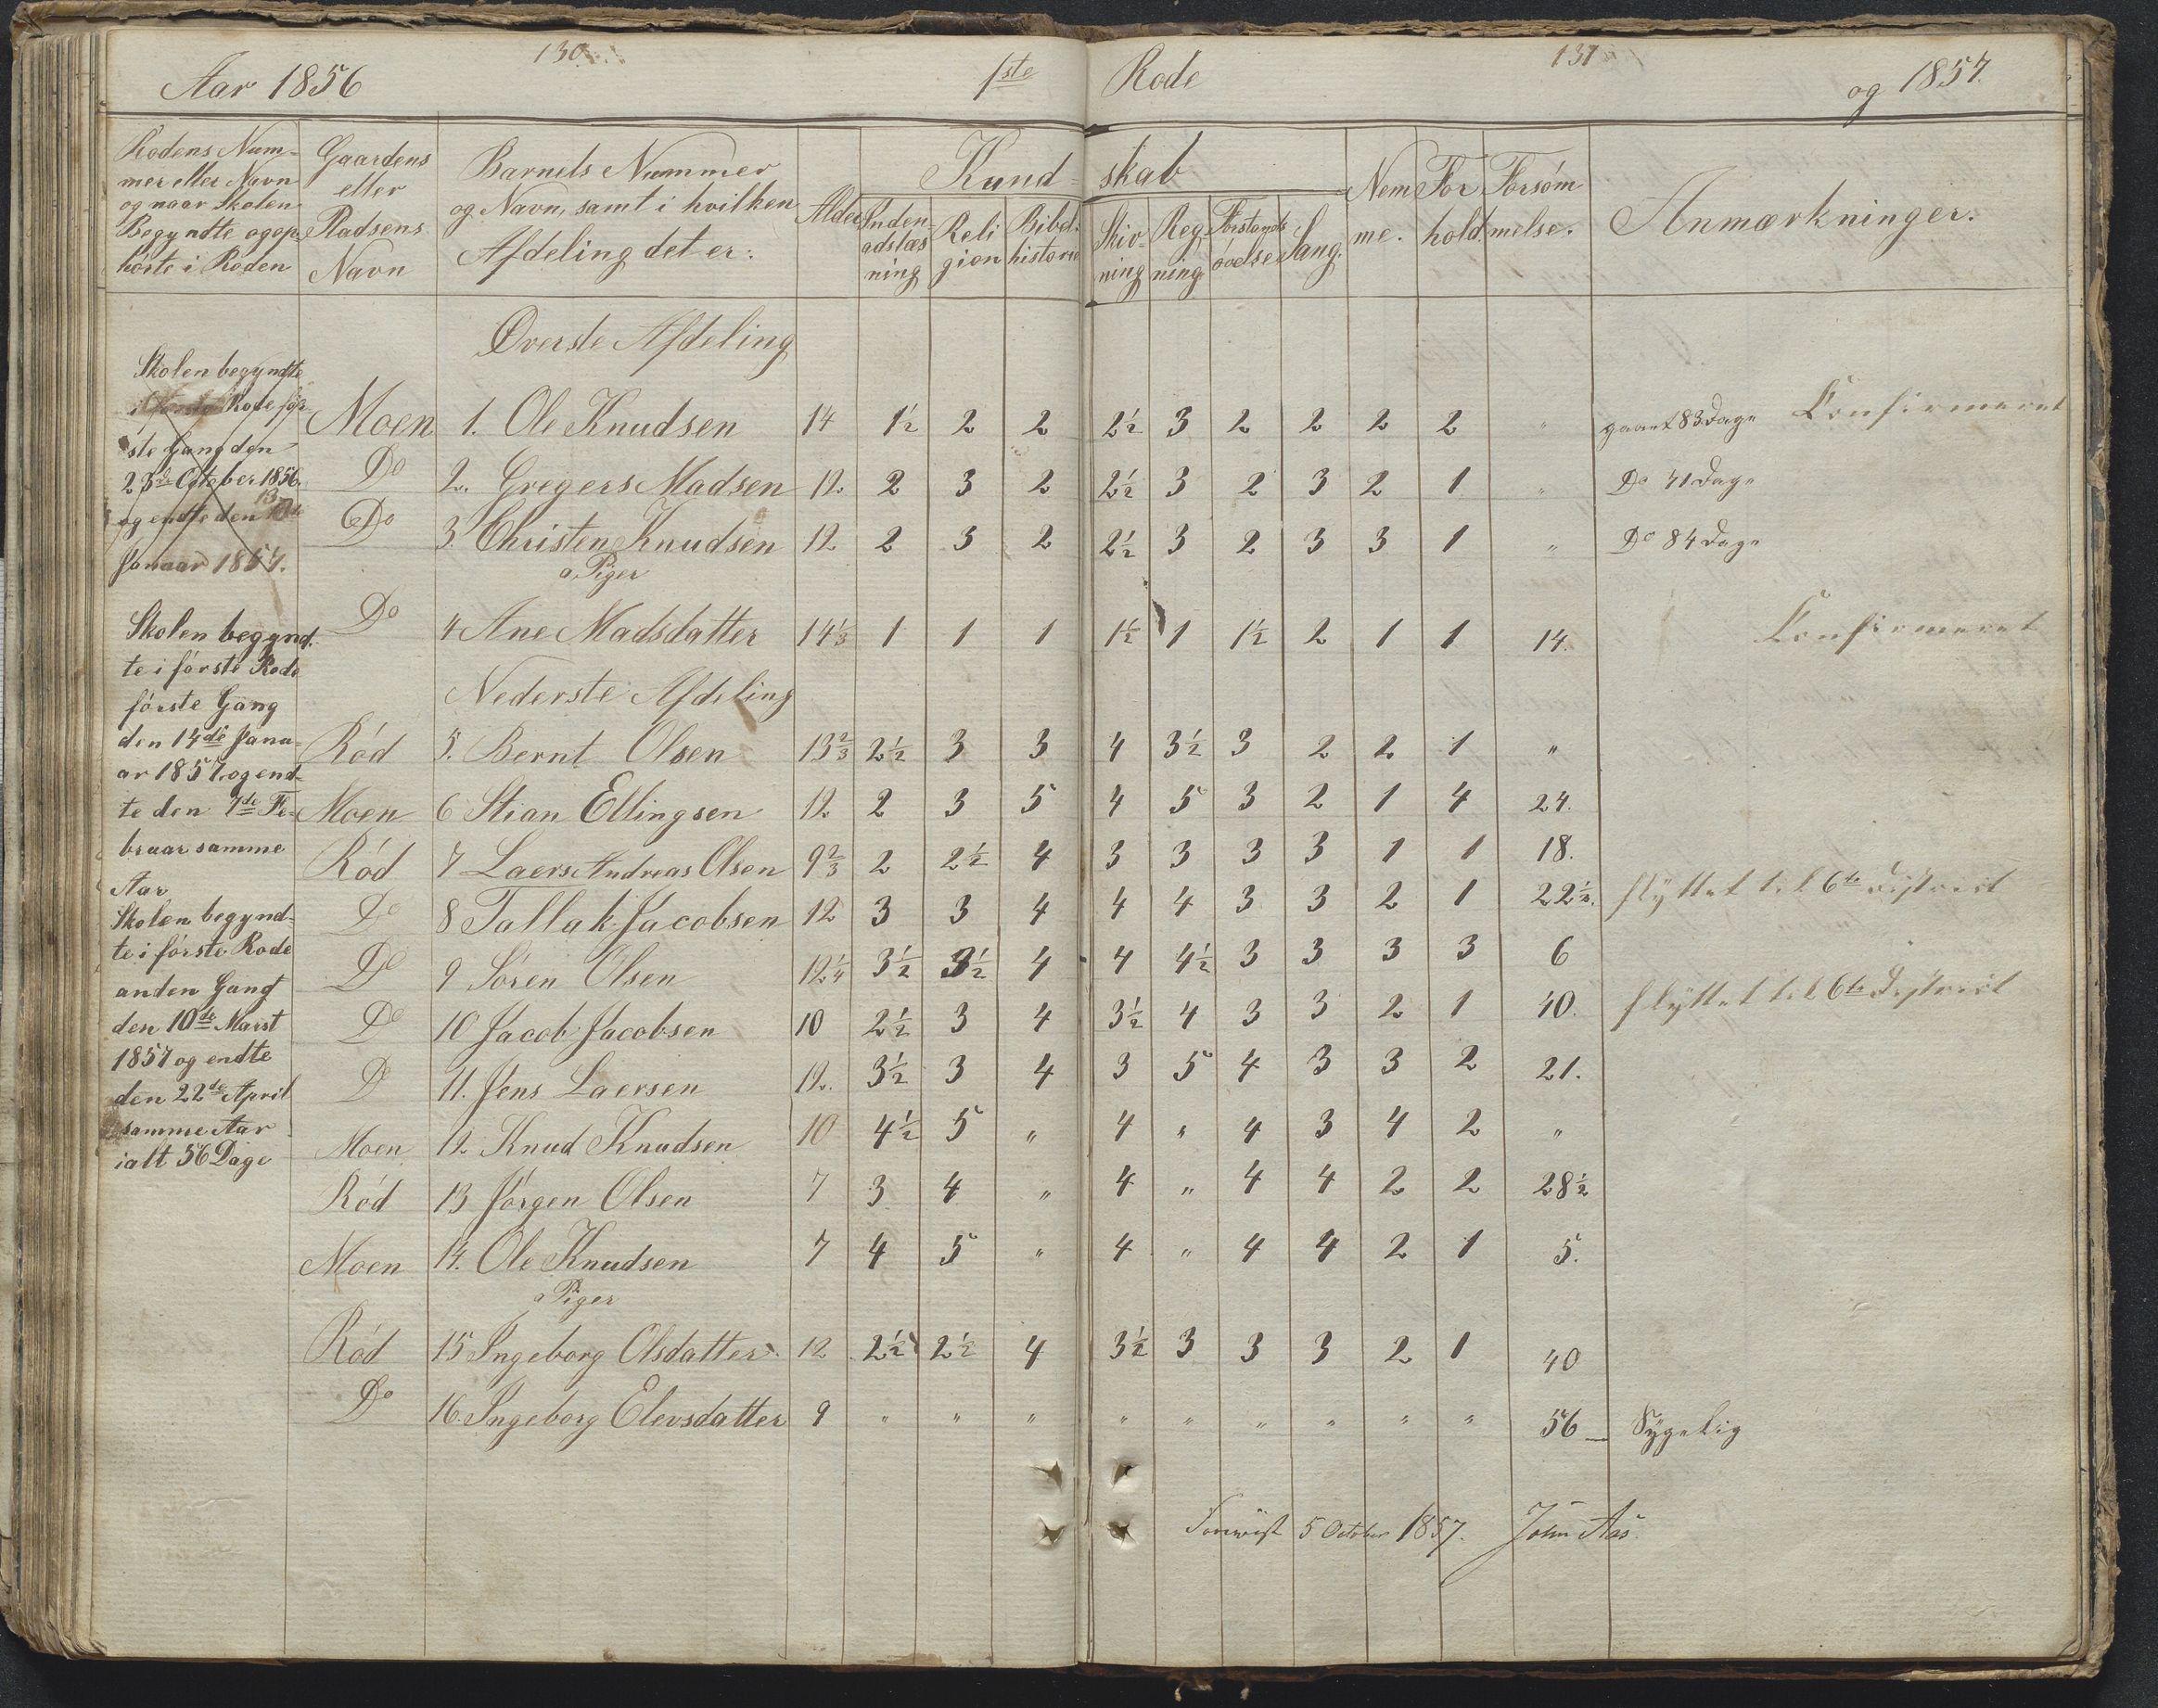 130. 131
Aar 1856 1ste Rode og 1857.
Rodens Num-
mer eller Navn
og naar Skolen
Begyndte og op-
hørte i Roden
Gaardens
eller
Pladsens
Navn
Barnets Nummer
og Navn, samt i hvilken
Afdeling det er:
Alder
Kund- skab
Inden-
adslæs
ning
Reli
gion
Bibel-
historie
Skiv-
ning
Reg-
ning
Forstands
øvelse
Sang.
Nem
me.
For
hold.
Forsøm
melse.
Anmærkninger.
Øverste Afdeling
Skolen begyndte
i første Rode før-
ste Gang den
23de October 1856.
og endte den 13de
Januar 1857.
Skolen begynd-
te i første Rode
første Gang
den 14de Janu-
ar 1857 og end-
te den 7de Fe-
bruar samme
Aar
Skolen begynd-
te i første Rode
anden Gang
den 10de Marst
1857 og endte
den 22de April
samme Aar
ialt 56 Dage
Moen 1. Ole Knudsen 14 1½ 2 2 2½ 3 2 2 2 2 " gaaet 83 Dage Confirmeret
Do 2. Gregers Madsen 12 2 3 2 2½ 3 2 3 2 1 " Do 41 Dage
Do 3. Christen Knudsen 12 2 3 2 2½ 3 2 3 3 1 " Do 84 Dage
a, Piger
Do 4 Ane Madsdatter 14⅓ 1 1 1 1½ 1 1½ 2 1 1 14. Confirmeret
Nederste Afdeling
Rød 5. Bernt Olsen 13⅔ 2½ 3 3 4 3½ 3 2 2 1 "
Moen 6 Stian Ellingsen 12 2 3 5 4 5 3 2 1 4 24.
Rød 7 Laers Andreas Olsen 9⅔ 2 2½ 4 3 3 3 3 1 1 18.
Do 8 Tallak Jacobsen 12 3 3 4 4 4 3 3 2 1 22½. flyttet til 6te District
Do 9 Søren Olsen 12¼ 3½ 3½ 4 4 4½ 3 3 3 3 6
Do 10 Jacob Jacobsen 10 2½ 3 4 3½ 4 3 3 2 1 40. flyttet til 6te District
Do 11. Jens Laersen 12. 3½ 3 4 3 5 4 3 3 2 21.
Moen 12 Knud Knudsen 10 4½ 5 " 4 " 4 3 4 2 "
Rød 13 Jørgen Olsen 7 3 4 " 4 " 4 4 2 2 28½
Moen 14. Ole Knudsen 7 4 5 " 4 " 4 4 2 1 5.
a Piger
Rød 15 Ingeborg Olsdatter 12 2½ 2½ 4 3½ 3 3 3 2 1 40
Do 16. Ingeborg Elevsdatter 9 " " " " " " " " " 56 — Sygelig
Foreviist 5 October 1857. John Aas.